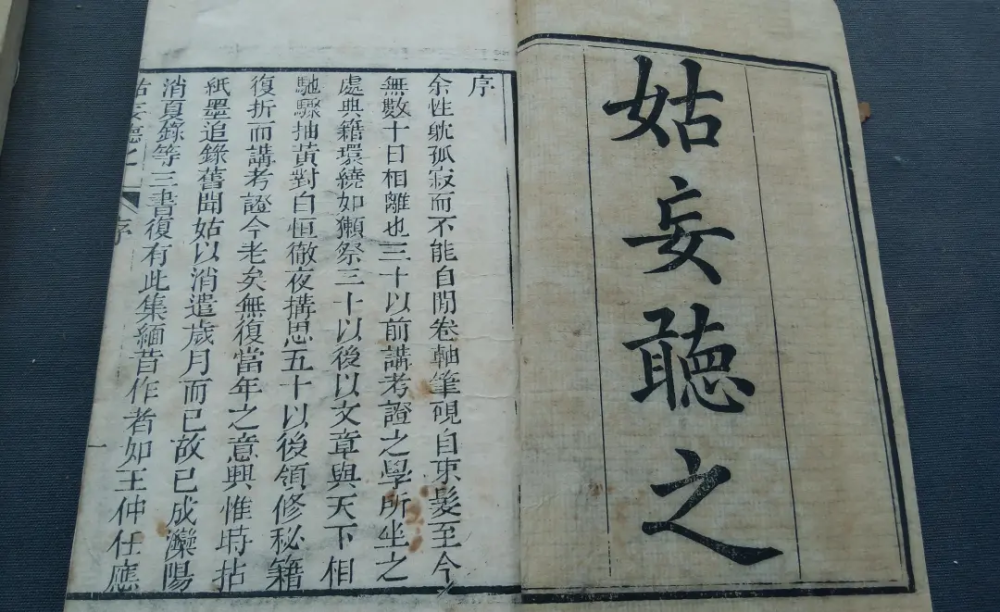 姑妄聽之
序
余性眈孤寂而不能自閒卷軸筆硯自束髮至今
無數十日相離也三十以前講考證之學所坐之
處典籍環繞如獺祭三十以後以文章與天下相
馳驟抽黃對白恒徹夜搆思五十以後領修秘籍
復折而講考證今老矣無復當年之意興惟時拈
紙墨追錄舊聞姑以消遣歲月而已故已成灤陽
消夏錄等三書復有此集緬昔作者如王仲任應
姑妄聽之
序
一